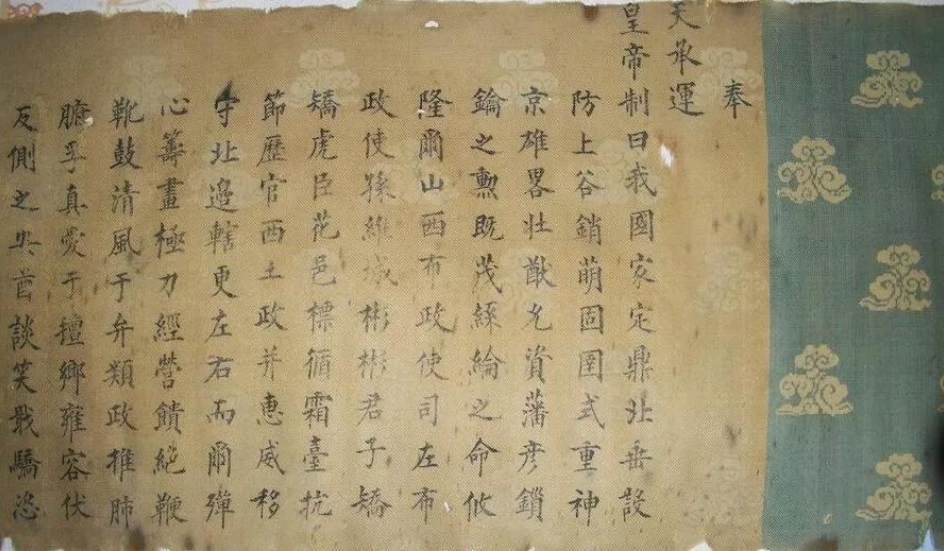 奉
天承運
皇帝制曰我國家定鼎北垂設
防上谷銷萌固圉式重神
京雄畧壯猷允資藩彦鎖
鑰之勲既茂絲綸之命攸
隆爾山西布政使司左布
政使孫維城彬彬君子矯
矯虎臣花邑標循霜臺抗
節歷官西土政并惠威移
守北邉轄更左右而爾殫
心籌畫極力經營饋絶鞭
靴鼓清風于弁類政推肺
腑孚真愛于擅鄉雍容伏
反側之 酋談笑戢驕恣